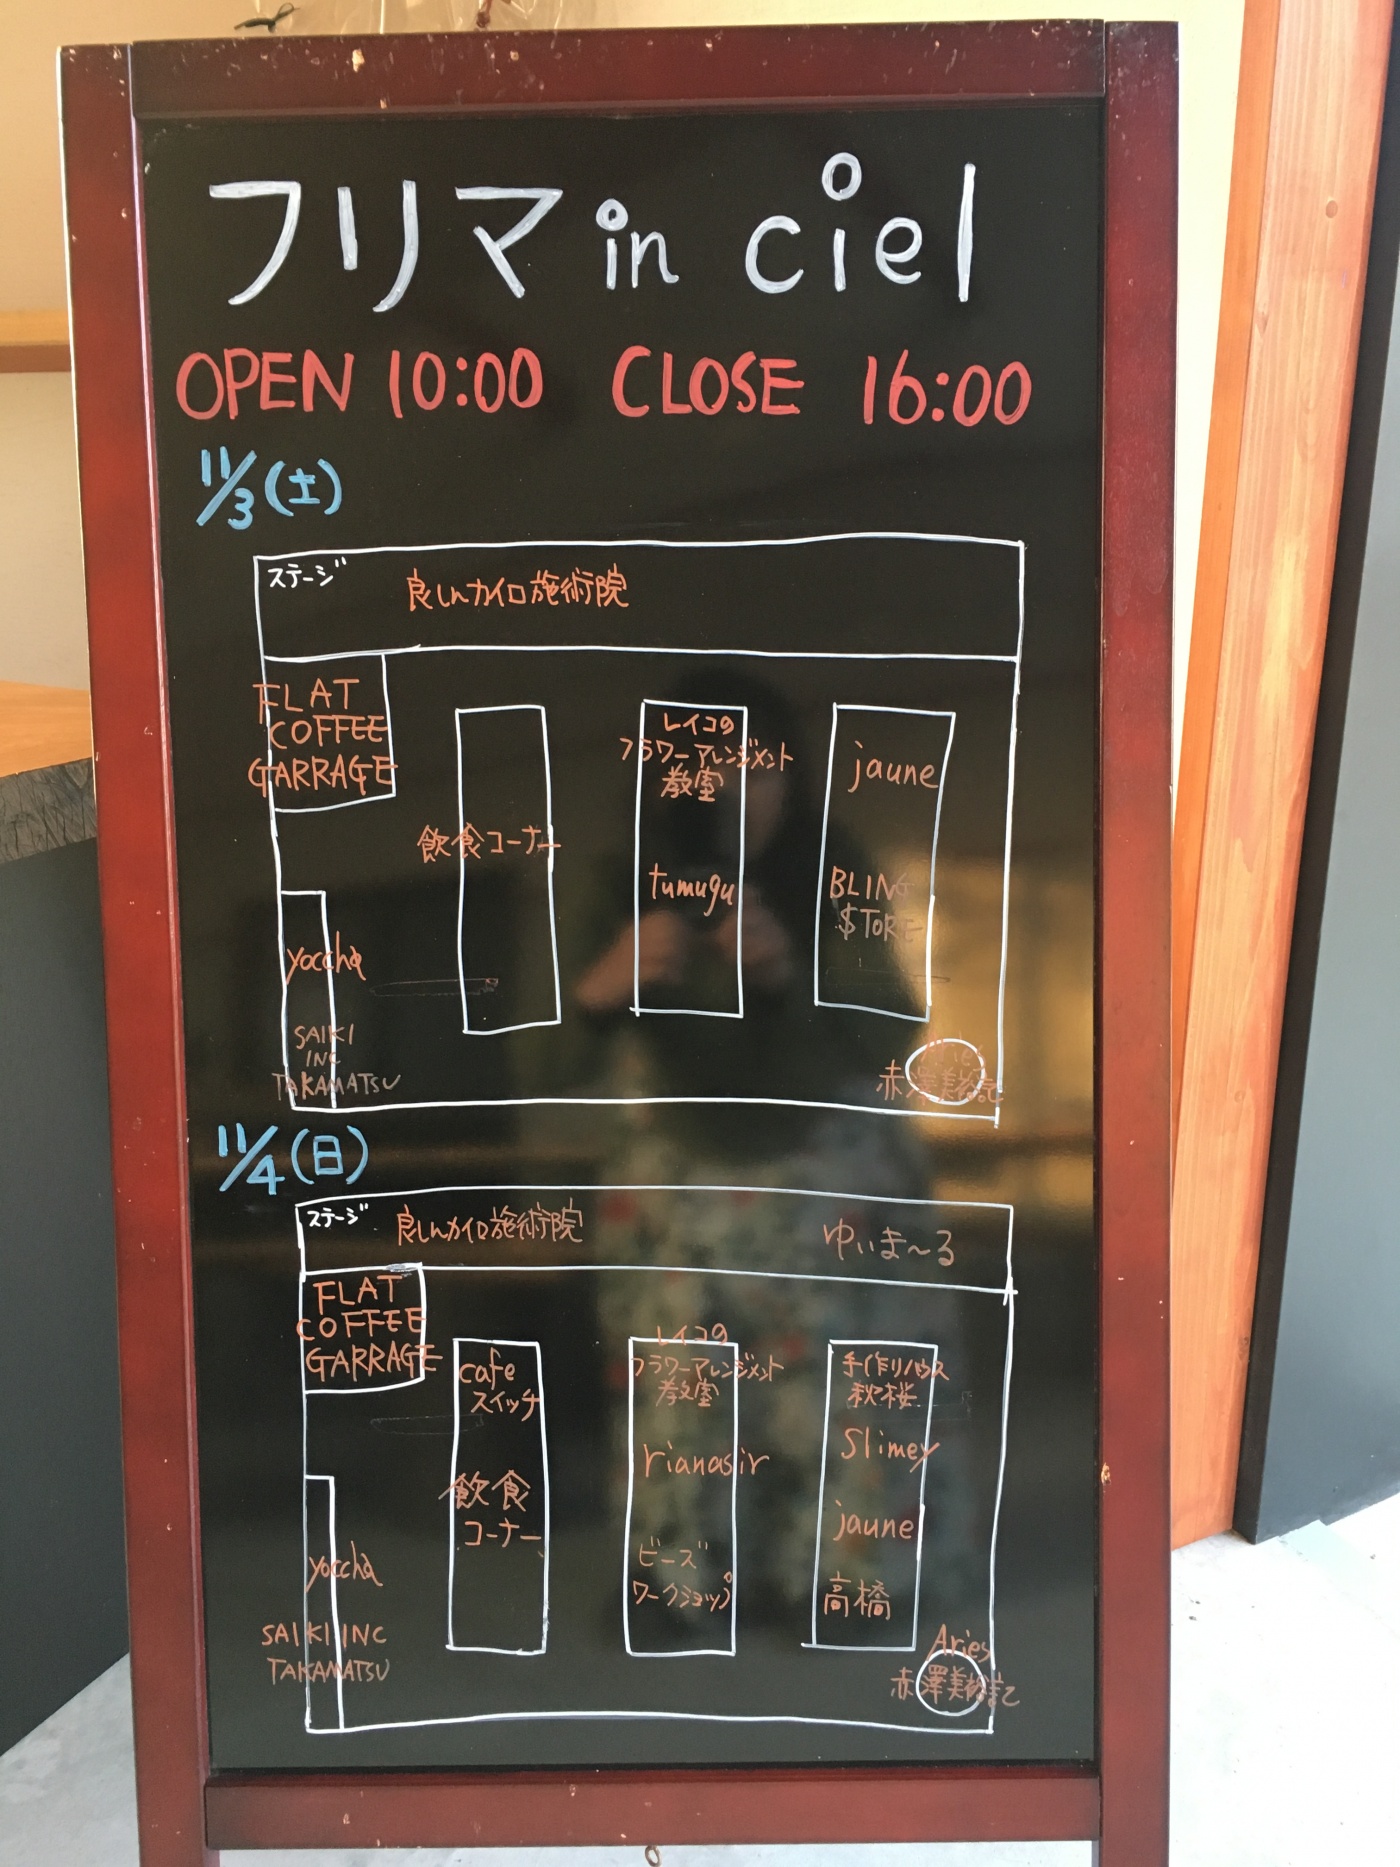 フリマ in ciel
OPEN 10:00 CLOSE 16:00
11/3(土)
ステージ
良しんカイロ施術院
FLAT
COFFEE
GARRAGE
飲食コーナー
レイコの
フラワーアレンジメント
教室
tumugu
jaune
BLING
$TORE
yoccha
SAIKI
INC
TAKAMATSU
Aries
赤澤美裕記
11/4(日)
ステージ
良しんカイロ施術院
ゆいま〜る
FLAT
COFFEE
GARRAGE
cafe
スイッチ
飲食
コーナー
レイコの
フラワーアレンジメント
教室
rianasir
ビーズ
ワークショップ
手作りハウス
秋桜
Slimey
jaune
高橋
yoccha
SAIKI INC
TAKAMATSU
Aries
赤澤美裕記